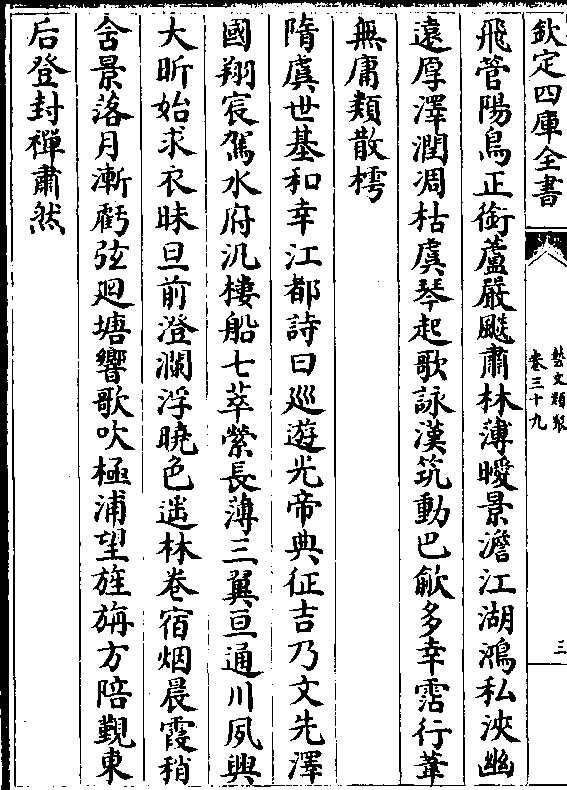 欽定四庫全書
藝文類聚
卷三十九
三
飛管陽鳥正銜蘆嚴飈肅林薄曖景澹江湖鴻私浹幽
遠厚澤潤凋枯虞琴起歌詠漢筑動巴歈多幸霑行葦
無庸類散樗
隋虞世基和幸江都詩曰廵遊光帝典征吉乃文先澤
國翔宸駕水府汎樓船七萃縈長薄三翼亘通川夙興
大昕始求衣昧旦前澄瀾浮曉色遥林卷宿烟晨霞稍
含景落月漸虧弦廻塘響歌吹極浦望旌旃方陪覲東
后登封禪肅然